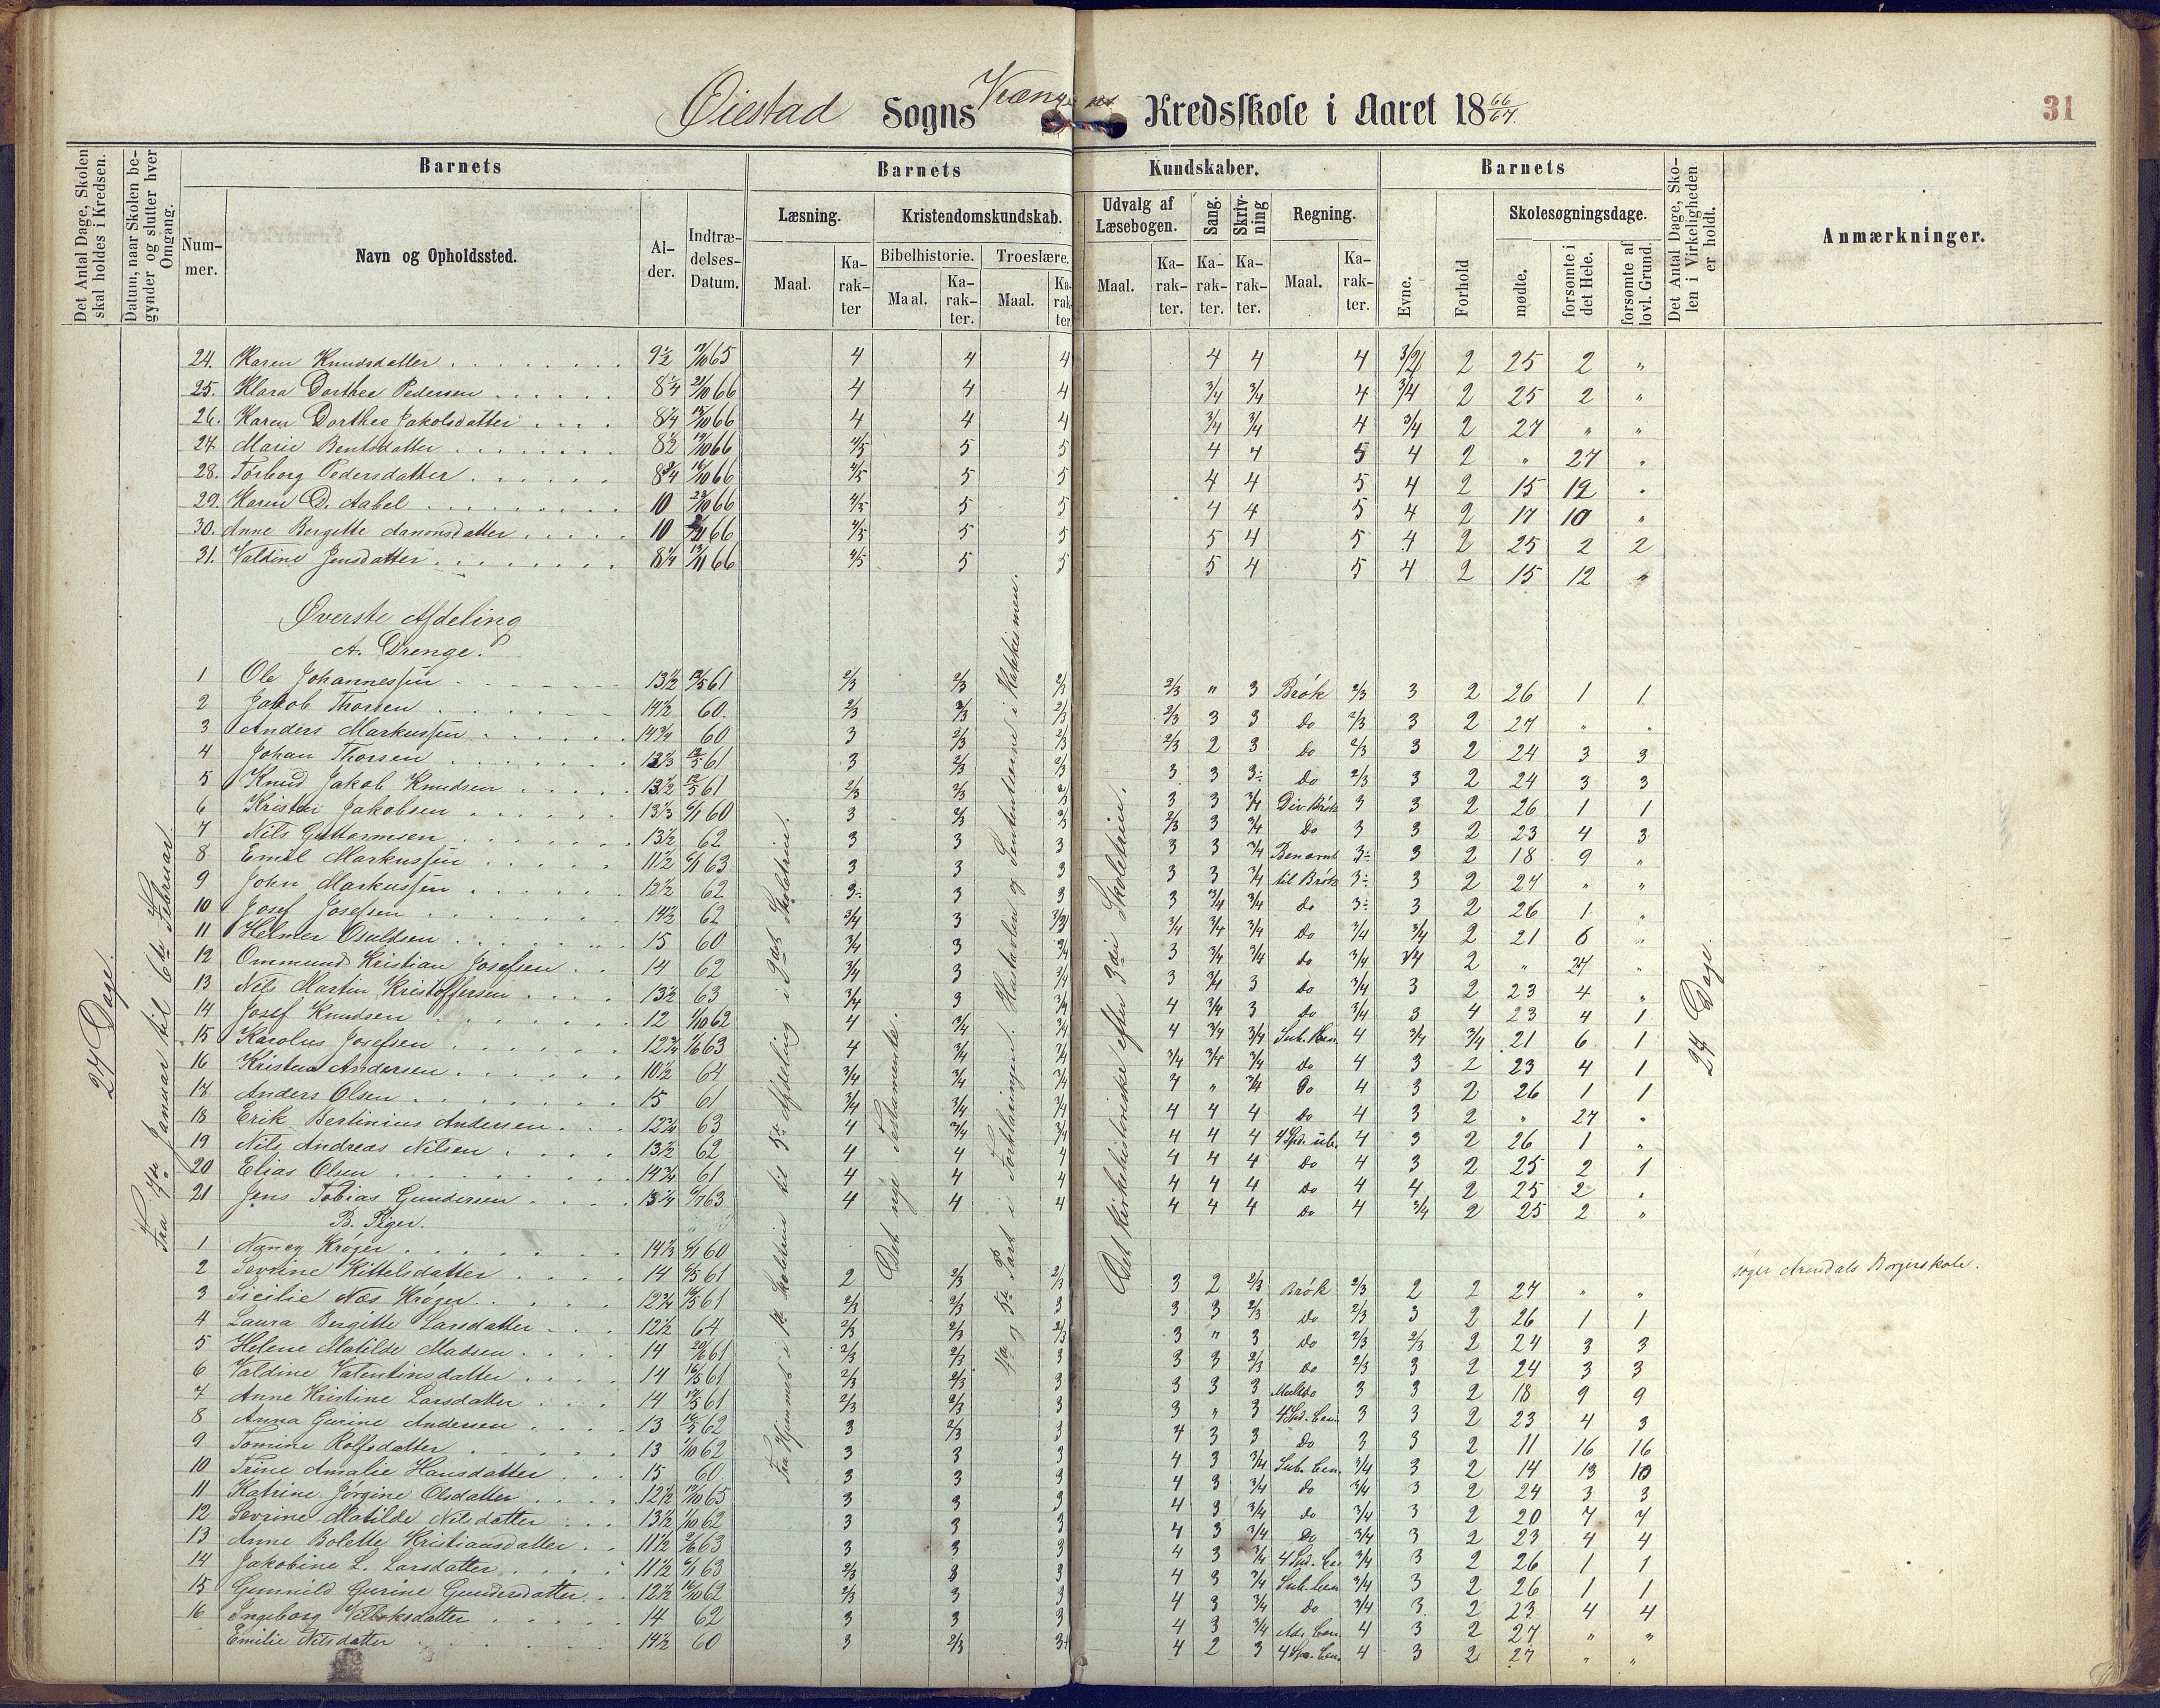 Øiestad Sogns Kredsskole i Aaret 18 66/67.
31
Det Antal Dage, Skolen skal holdes i Kredsen.
Datum, naar Skolen begynder og slutter hver Omgang.
Barnets
Nummer.
Navn og Opholdssted.
Alder.
Indtrædelses-Datum.
Barnets Kundskaber.
Læsning.
Maal.
Karakter
Kristendomskundskab.
Bibelhistorie.
Maal.
Karakter.
Troeslære.
Maal.
Karakter
Udvalg af Læsebogen.
Maal.
Karakter.
Sang.
Karakter.
Skrivning
Karakter.
Regning.
Maal.
Karakter.
Barnets
Evne.
Forhold
Skolesøgningsdage.
mødte.
forsømte i det Hele.
forsømte af lovl. Grund.
Det Antal Dage, Skolen i Virkeligheden er holdt.
Anmærkninger.
24. Karen Knudsdatter 9½ 65 4 4 4 4 4 4 3/4 2 25 2 "
25. Klara Dorthee Pedersen 8¼ 66 4 4 4 3/4 3/4 4 3/4 2 25 2 "
26. Karen Dorthee Jakobsdatter 8¼ 66 4 4 4 3/4 3/4 4 3/4 2 27 " "
27. Marie Bentsdatter 8½ 66 4/5 5 5 4 4 5 4 2 " 27 "
28. Torborg Pedersdatter 8¾ 16/10 66 4/5 5 5 4 4 5 4 2 15 12 "
29. Karen D. Aabel 10 66 4/5 5 5 4 4 5 4 2 17 10 "
30. Anne Bergette Aanonsdatter 10 66 4/5 5 5 5 4 5 4 2 25 2 2
31. Valdine Jensdatter 8¼ 66 4/5 5 5 5 4 5 4 2 15 12 "
Øverste Afdeling
A. Drenge.
1 Ole Johannessen 13½ 61 2/3 2/3 2/3 2/3 " 3 Brøk 2/3 3 2 26 1 1
2 Jakob Thorsen 14½ 60. 2/3 2/3 2/3 2/3 3 3 Do 2/3 3 2 27 " "
3 Anders Markussen 14¾ 60 3 2/3 2/3 2/3 2 3 Do 2/3 3 2 24 3 3
4 Johan Thorsen 61 3 2/3 2/3 3 3 3÷ Do 2/3 3 2 24 3 3
5 Knud Jakob Knudsen 13½ 61 2/3 2/3 2/3 3 3 3/4 Div Brøk 3 3 2 26 1 1
6 Kristen Jakobsen 60 3 2/3 2/3 2/3 3 3/4 Do 3 3 2 23 4 3
7 Nils Guttormsen 13½ 62 3 3 3 3 3 3/4 Benævnt 3÷ 3 2 18 9 "
8 Emil Markussen 11½ 63 3 3 3 3 3 3/4 til Brøk 3÷ 3 2 27 " "
9 John Markussen 12½ 62 3÷ 3 3 3 3/4 3/4 do 3÷ 3 2 26 1 "
10 Josef Josefsen 14½ 62 3/4 3 3/4 3/4 3/4 Do 3/4 3/4 2 21 6 "
11 Helmer Osuldsen 15 60 3/4 3 3/4 3 3/4 3/4 do 3/4 3/4 2 " 27 "
12 Ommund Kristian Josefsen 14 62 3/4 3 3/4 3 3/4 3 do 3/4 3 2 23 4 "
13 Nils Martin Kristoffersen 13½ 63 3/4 3 3/4 4 3/4 3 do 3/4 3 4 23 4 1
14 Josef Knudsen 12 62 4 3/4 3/4 4 3/4 3/4 Sub. Ben. 4 3/4 3/4 21 6 1
15 Karolus Josefsen 12¾ 63 4 3/4 3/4 3/4 3/4 3/4 Do 4 3 2 23 4 1
16 Kristen Andersen 10½ 64 3/4 3/4 3/4 4 " 3/4 Do 4 3 2 26 1 1
17. Anders Olsen 15 61 3/4 3/4 3/4 4 4 4 Do 4 3 2 " 27 "
18 Erik Bertinius Andersen 12¾ 63 4 3/4 3/4 4 4 4 4 Spd. ub. 4 3 2 26 1 "
19 Nils Andreas Nilsen 13½ 62 4 4 4 4 4 4 Do 4 3 2 25 2 1
20 Elias Olsen 14¾ 61 4 4 4 4 4 4 Do 4 4 2 25 2 "
21 Jens Tobias Gundersen 13¼ 63 4 4 4 4 4 4 Do 4 3/4 2 25 2 "
B. Piger.
1 Nancy Krøger 60 søger Arendals Borgerskole.
2 Sevrine Kittelsdatter 14 61 2 2/3 2/3 3 2 2/3 Brøk 2/3 2 2 27 " "
3 Sicilie Næs Krøger 12¾ 61 2/3 2/3 3 3 3 2/3 Do 2/3 3 2 26 1 1
4 Laura Bergitte Larsdatter 12½ 64 2/3 2/3 2/3 3 " 3 Do 2/3 2/3 2 24 3 3
5 Helene Matilde Madsen 14 61 2/3 2/3 3 3 3 2/3 Do 2/3 3 2 24 3 3
6 Valdine Valentinsdatter 14 16/5 61 2/3 2/3 3 3 3 3 3 3 2 18 9 9
7 Anne Kristine Larsdatter 14 61 2/3 2/3 3 3 " 3 4 Spd. ben. 3 3 2 23 4 3
8 Anna Gurine Andersen 13 62 3 2/3 3 4 3 3 Do 3 3 2 11 16 16
9 Tomine Rolfsdatter 13 62 3 3 3 4 3 3/4 Sub. ben. 3/4 3 2 14 13 10
10 Trine Amalie Hansdatter 15 60 3 3 3 4 3 3/4 Do 3/4 3 2 24 3 3
11 Katrine Jørgine Olsdatter 12½ 65 3 3 3 4 3 3/4 do 3/4 3 2 20 7 7
12 Sevrine Matilde Nilsdatter 13½ 62 3 3 3 4 3 3/4 Do 3/4 3 2 23 4 4
13 Anne Bolette Kristiansdatter 11½ 63 3 3 3 4 3 3/4 4 Spd. be. 3/4 3 2 26 1 1
14 Jakobine L. Larsdatter 11½ 63 2/3 3 3 4 3 3/4 Sub. ben 3/4 3 2 26 1 1
15 Gunnild Gurine Gundersdatter 12½ 62 2/3 3 3 4 3 3/4 Do 3/4 3 2 23 4 4
16 Ingeborg datter 14 62 3 3 3 4 3 3/4 Ad. ben. 4 3 2 27 " "
Emilie Nilsdatter 14½ 60 3 2/3 3+ 4 2 3 4 Spe. ben. 4 3 2 27 " "
27 Dage.
Fra 7de Januar til 6te Februar.
Fra Hjemmet i 1ste Skoletrin til 5te Afdeling i 3die Skoletrin.
Det nye Testamente.
4de og 5te Part i Forklaringen. Hustavlen og Sententserne i Katekismen.
Det Kirkehistoriske efter 3die Skoletrin.
27 Dage.